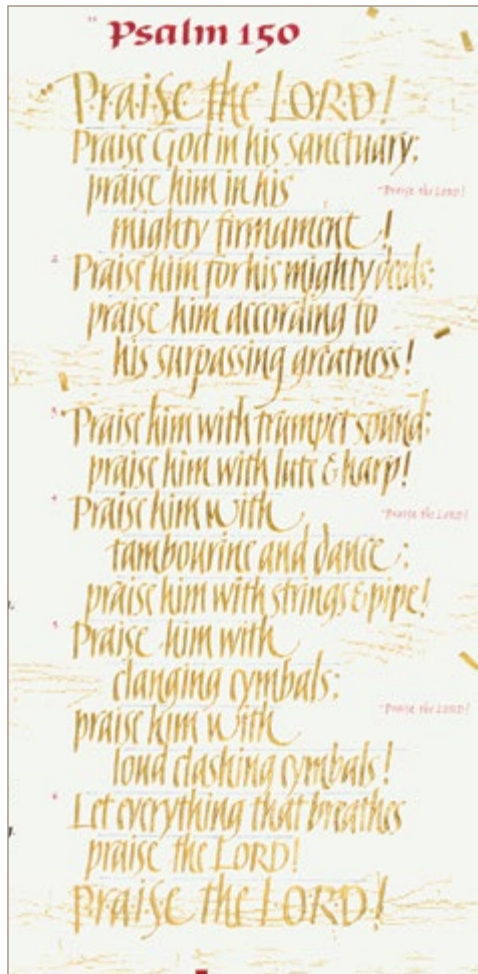 Psalm 150
Praise the LORD!
Praise God in his sanctuary;
praise him in his
"Praise the LORD!
mighty firmament !
2 Praise him for his mighty deeds;
praise him according to
his surpassing greatness!
3 Praise him with trumpet sound;
praise him with lute & harp!
4 Praise him with
"Praise the LORD!
tambourine and dance ;
praise him with strings & pipe!
5 Praise him with
clanging cymbals;
praise him with
"Praise the LORD!
loud clashing cymbals!
6 Let everything that breathes
praise the LORD!
praise the LORD!